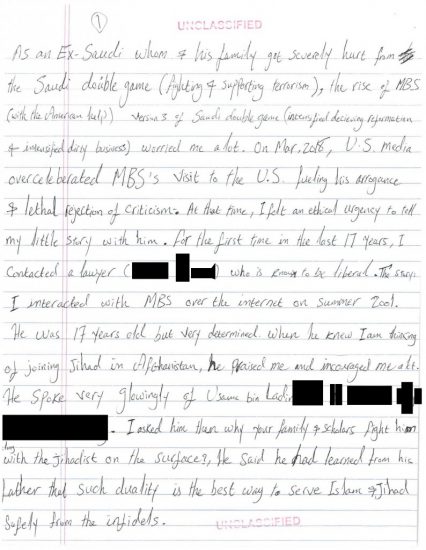 1
UNCLASSIFIED
As an Ex-Saudi whom & his family got severely hurt from
the Saudi double game (fighting & supporting terrorism), the rise of MBS
(with the American help) version 3 of Saudi double game (intensified decieving reformation
& intensified dirty business) worried me alot. On Mar, 2018, U.S. media
overcelebrated MBS's visit to the U.S. fueling his arrogance
& lethal rejection of criticism. At that time, I felt an ethical urgency to tell
my little story with him. For the first time in the last 17 years, I
contacted a lawyer ( ) who is known to be liberal. The story:
I interacted with MBS over the internet on summer 2001.
He was 17 years old but very determined. When he knew I am thinking
of joining Jihad in Afghanistan, he praised me and incouraged me alt.
He spoke very glowingly of Usama bin Ladin
. I asked him then why your family & scholars fight him
with the jihadist on the surface?, He said he had learned from his
father that such duality is the best way to serve Islam & Jihad
safely from the infidels.
UNCLASSIFIED